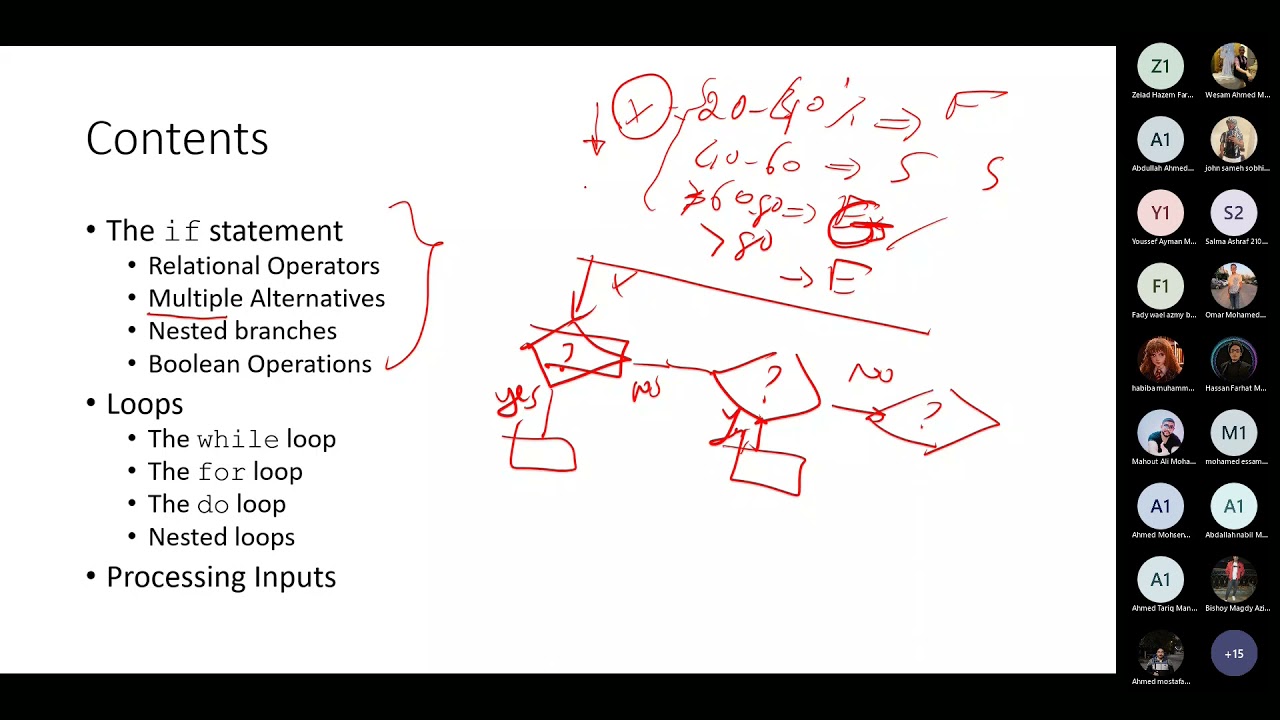 Contents
• The if statement
• Relational Operators
• Multiple Alternatives
• Nested branches
• Boolean Operations
• Loops
• The while loop
• The for loop
• The do loop
• Nested loops
• Processing Inputs
20-40% ⇒ F
40-60 ⇒ S S
60-80 ⇒
>80
→ E
?
yes
no
?
no
?
Z1
Zeiad Hazem Far...
Wesam Ahmed M...
A1
Abdullah Ahmed...
john sameh sobhi...
Y1
Youssef Ayman M...
S2
Salma Ashraf 210...
F1
Fady wael azmy b...
Omar Mohamed...
habiba muhamm...
Hassan Farhat M...
Mahout Ali Moha...
M1
mohamed essam...
A1
Ahmed Mohsen...
A1
Abdallahnabil M...
A1
Ahmed Tariq Man...
Bishoy Magdy Azi...
Ahmed mostafa...
+15